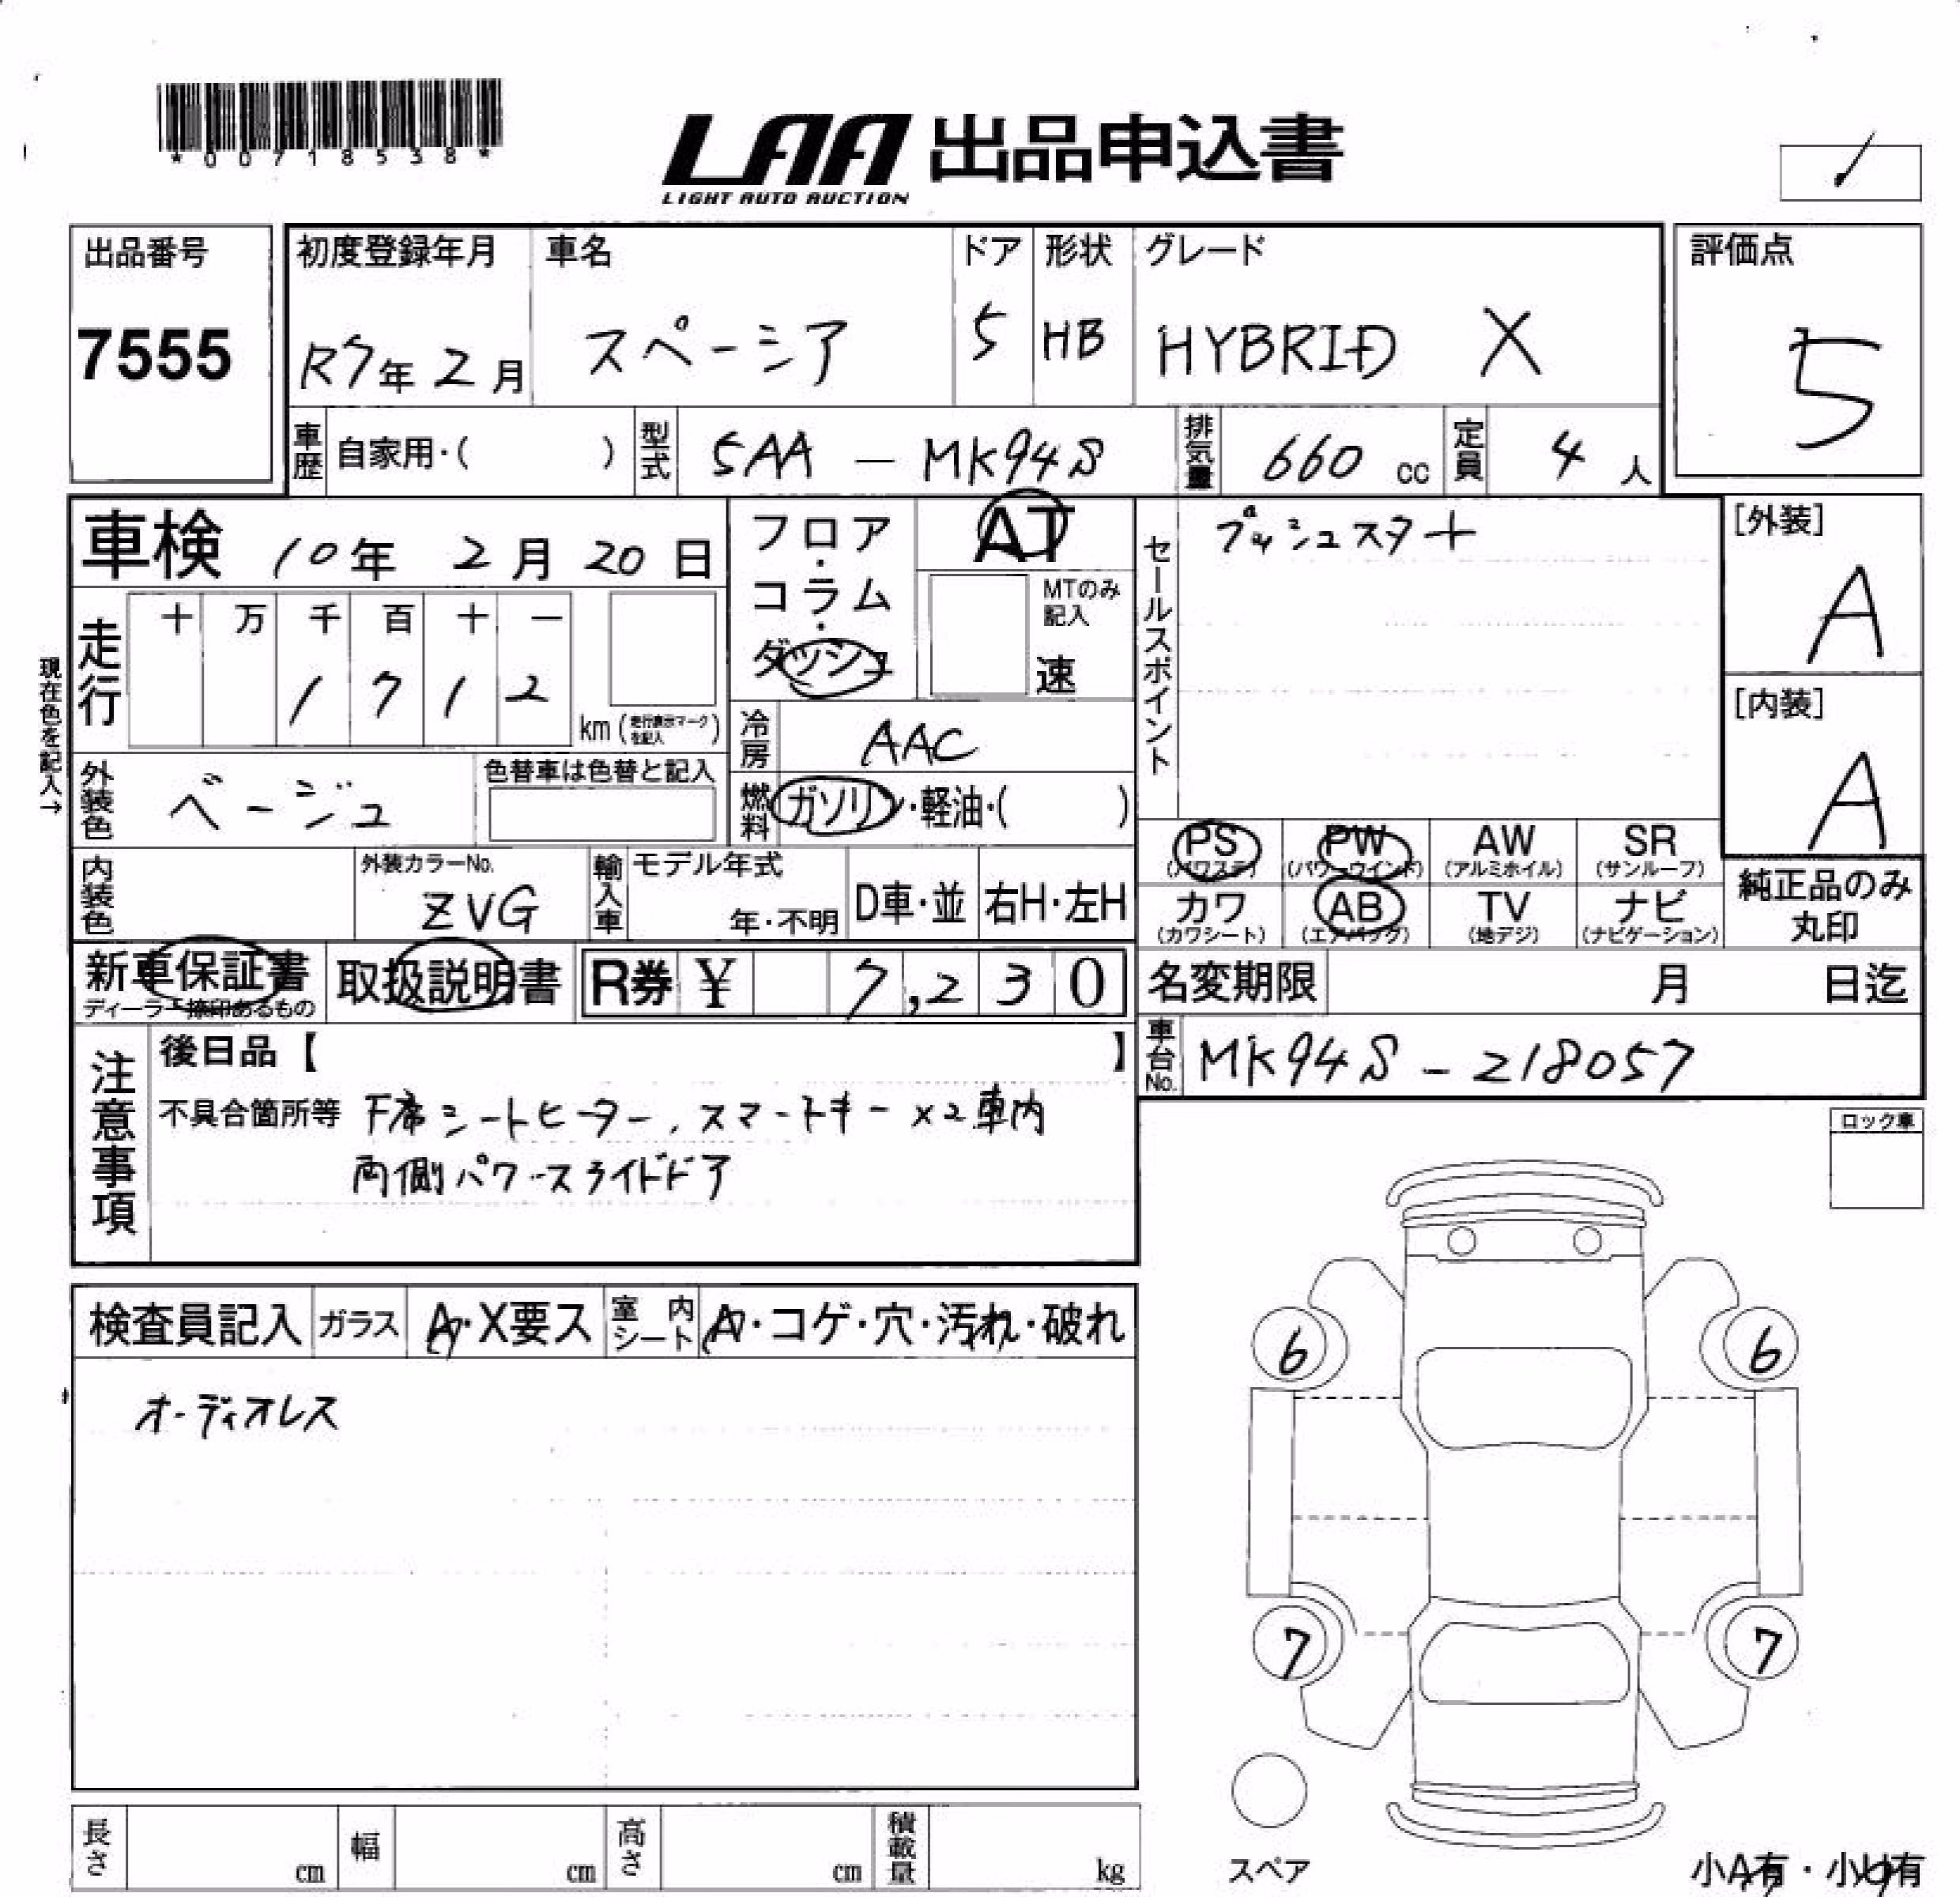 *00718538*
LAA 出品申込書
LIGHT AUTO AUCTION
出品番号
7555
初度登録年月
R7年 2月
車名
スペーシア
ドア
5
形状
HB
グレード
HYBRID X
評価点
5
車歴
自家用・( )
型式
5AA - MK94S
排気量
660 cc
定員
4 人
車検 10年 2月 20日
走行
十 万 千 百 十 一
1 7 1 2
km (走行表示マークを記入)
現在色を記入→
フロア・コラム・ダッシュ
AT
MTのみ記入
速
冷房
AAC
燃料
ガソリン・軽油・( )
セールスポイント
プッシュスタート
[外装]
A
[内装]
A
外装色
ベージュ
色替車は色替と記入
内装色
外装カラーNo.
ZVG
輸入車
モデル年式
年・不明
D車・並
右H・左H
PS
(パワステ)
PW
(パワーウインド)
AW
(アルミホイル)
SR
(サンルーフ)
カワ
(カワシート)
AB
(エアバッグ)
TV
(地デジ)
ナビ
(ナビゲーション)
純正品のみ
丸印
新車保証書
ディーラー捺印あるもの
取扱説明書
R券 ¥ 7,230
名変期限 月 日迄
車台No.
MK94S - 218057
注意事項
後日品【 】
不具合箇所等 F席シートヒーター、スマートキー×2車内
両側パワースライドドア
ロック車
検査員記入
ガラス
A・X要ス
室内シート
A・コゲ・穴・汚れ・破れ
オーディオレス
6
6
7
7
スペア
小A有・小U有
長さ cm
幅 cm
高さ cm
積載量 kg